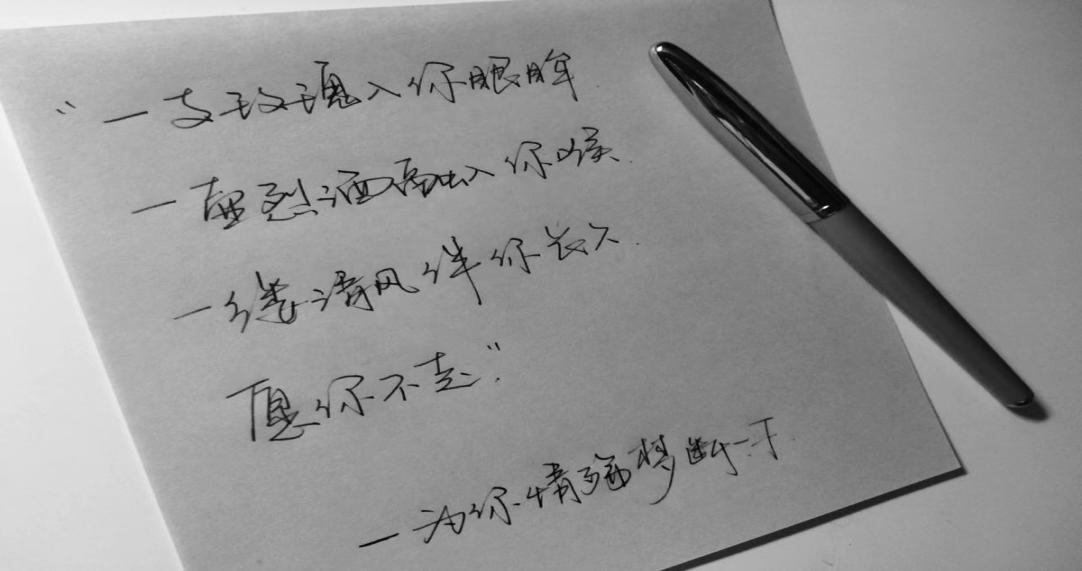 “一支玫瑰入你眼眸
一壶烈酒入你喉.
一缕清风伴你长久.
愿你不走”
—为你情殇梦断一